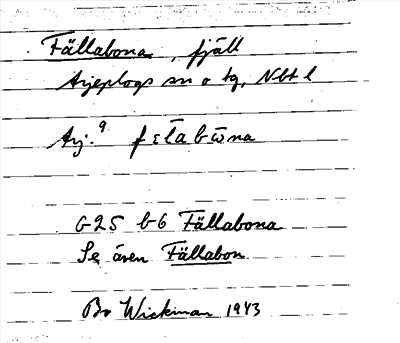 Fällabona, fjäll
Arjeplogs sn o tg, Nbt l
Arj.⁹ fɛlabōna
G25 b6 Fällabona
Se även Fällabon
Bo Wickman 1943